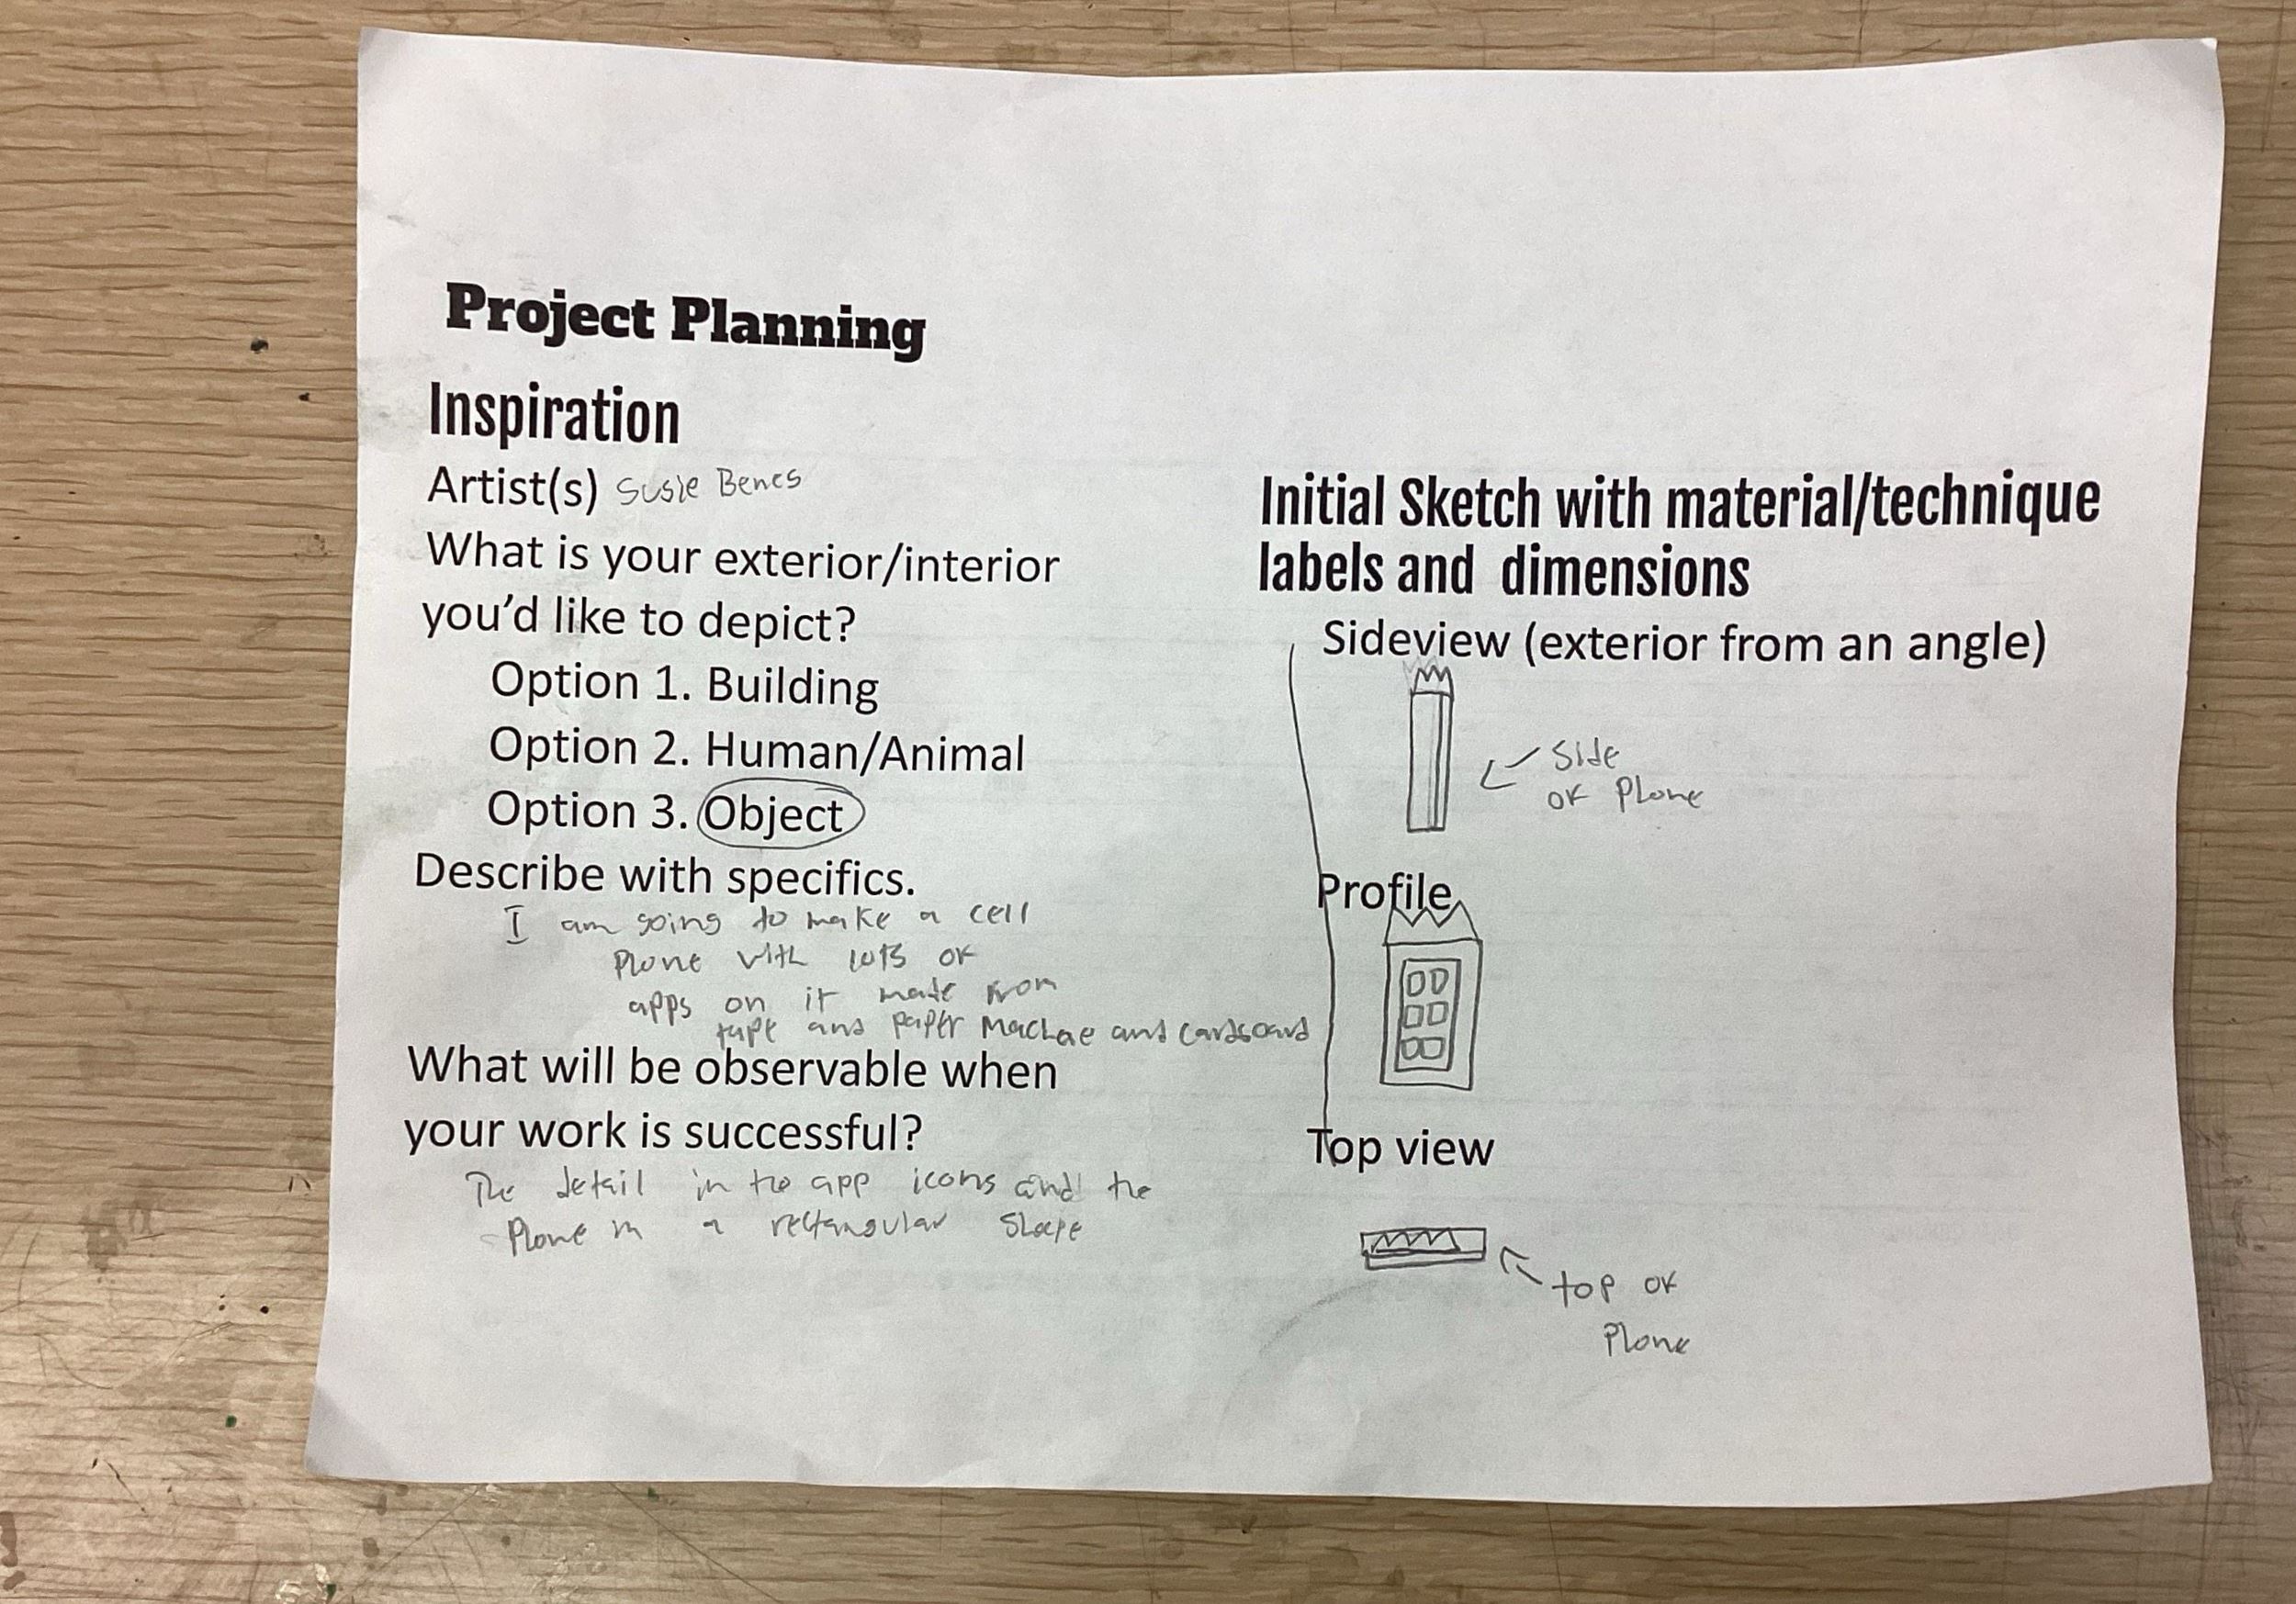 Project Planning
Inspiration
Artist(s) Susie Benes
What is your exterior/interior
you'd like to depict?
Option 1. Building
Option 2. Human/Animal
Option 3. Object
Describe with specifics.
I am going to make a cell
phone with lots of
apps on it made from
tape and paper machae and cardboard
What will be observable when
your work is successful?
The detail in the app icons and the
Phone in a rectangular shape
Initial Sketch with material/technique
labels and dimensions
Sideview (exterior from an angle)
Side
of Phone
Profile
Top view
top of
Phone